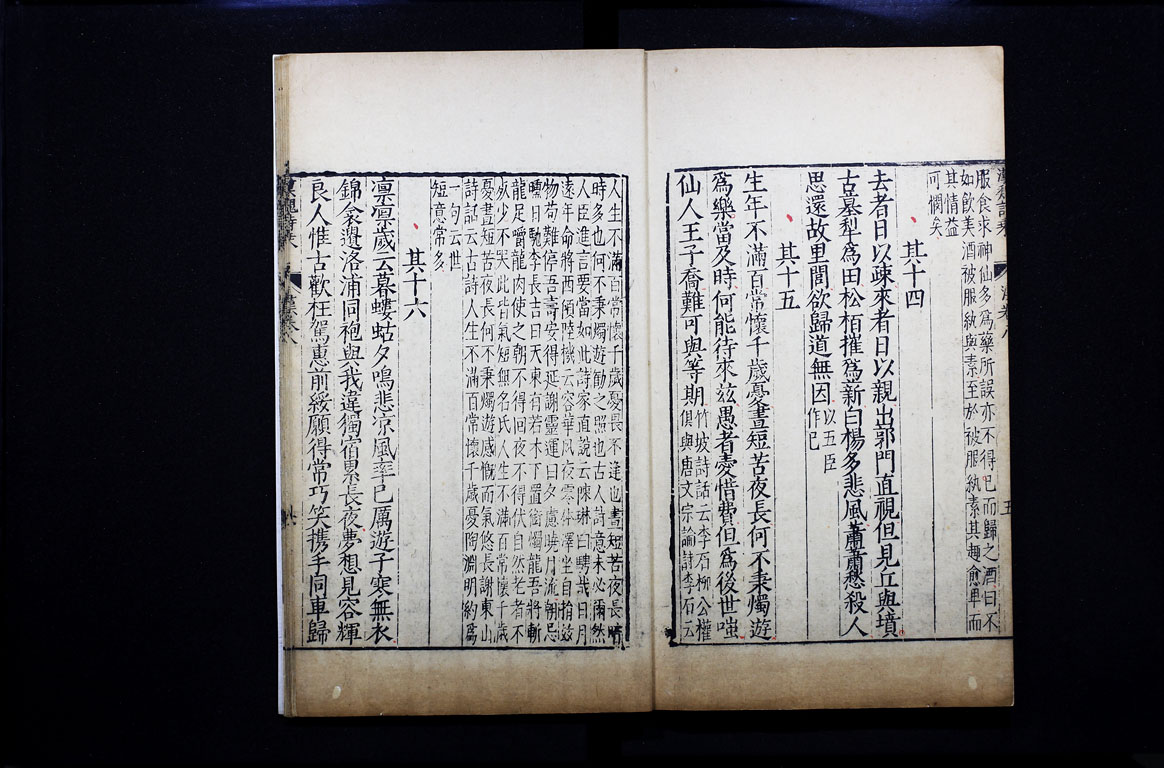 服食求神仙多為藥所誤亦不得已而歸之酒曰不
如飲美酒被服紈與素至於被服紈素其趣愈卑而
其情益
可憫矣
其十四
去者日以疎來者日以親出郭門直視但見丘與墳
古墓犁為田松栢摧為薪白楊多悲風蕭蕭愁殺人
思還故里閭欲歸道無因
以五臣
作已
其十五
生年不滿百常懷千歲憂晝短苦夜長何不秉燭遊
為樂當及時何能待來茲愚者愛惜費但為後世嗤
仙人王子喬難可與等期
竹坡詩話云李石柳公權
俱與唐文宗論詩李石云
人生不滿百常懷千歲憂畏不逢也晝短苦夜長暗
時多也何不秉燭遊勸之照也古人詩意未必爾然
人臣進言要當如此詩家直說云陳琳曰騁哉日月
遠年命將西傾陸機云容華夙夜零体澤坐自捐茲
物苟難停吾壽安得延謝靈運曰夕慮曉月流朝忌
曛日馳李長吉曰天東有若木下置銜燭龍吾將斬
龍足嚼龍肉使之朝不得囘夜不得伏自然老者不
死少不哭此皆氣短無名氏人生不滿百常懷千歲
憂晝短苦夜長何不秉燭遊感慨而氣悠長謝東山
詩話云古詩人生不滿百常懷千歲憂陶淵明約為
一句云世
短意常多
其十六
凛凛歲云暮螻蛄夕鳴悲凉風率已厲遊子寒無衣
錦衾遺洛浦同袍與我違獨宿累長夜夢想見容輝
良人惟古歡枉駕惠前綏願得常巧笑携手同車歸